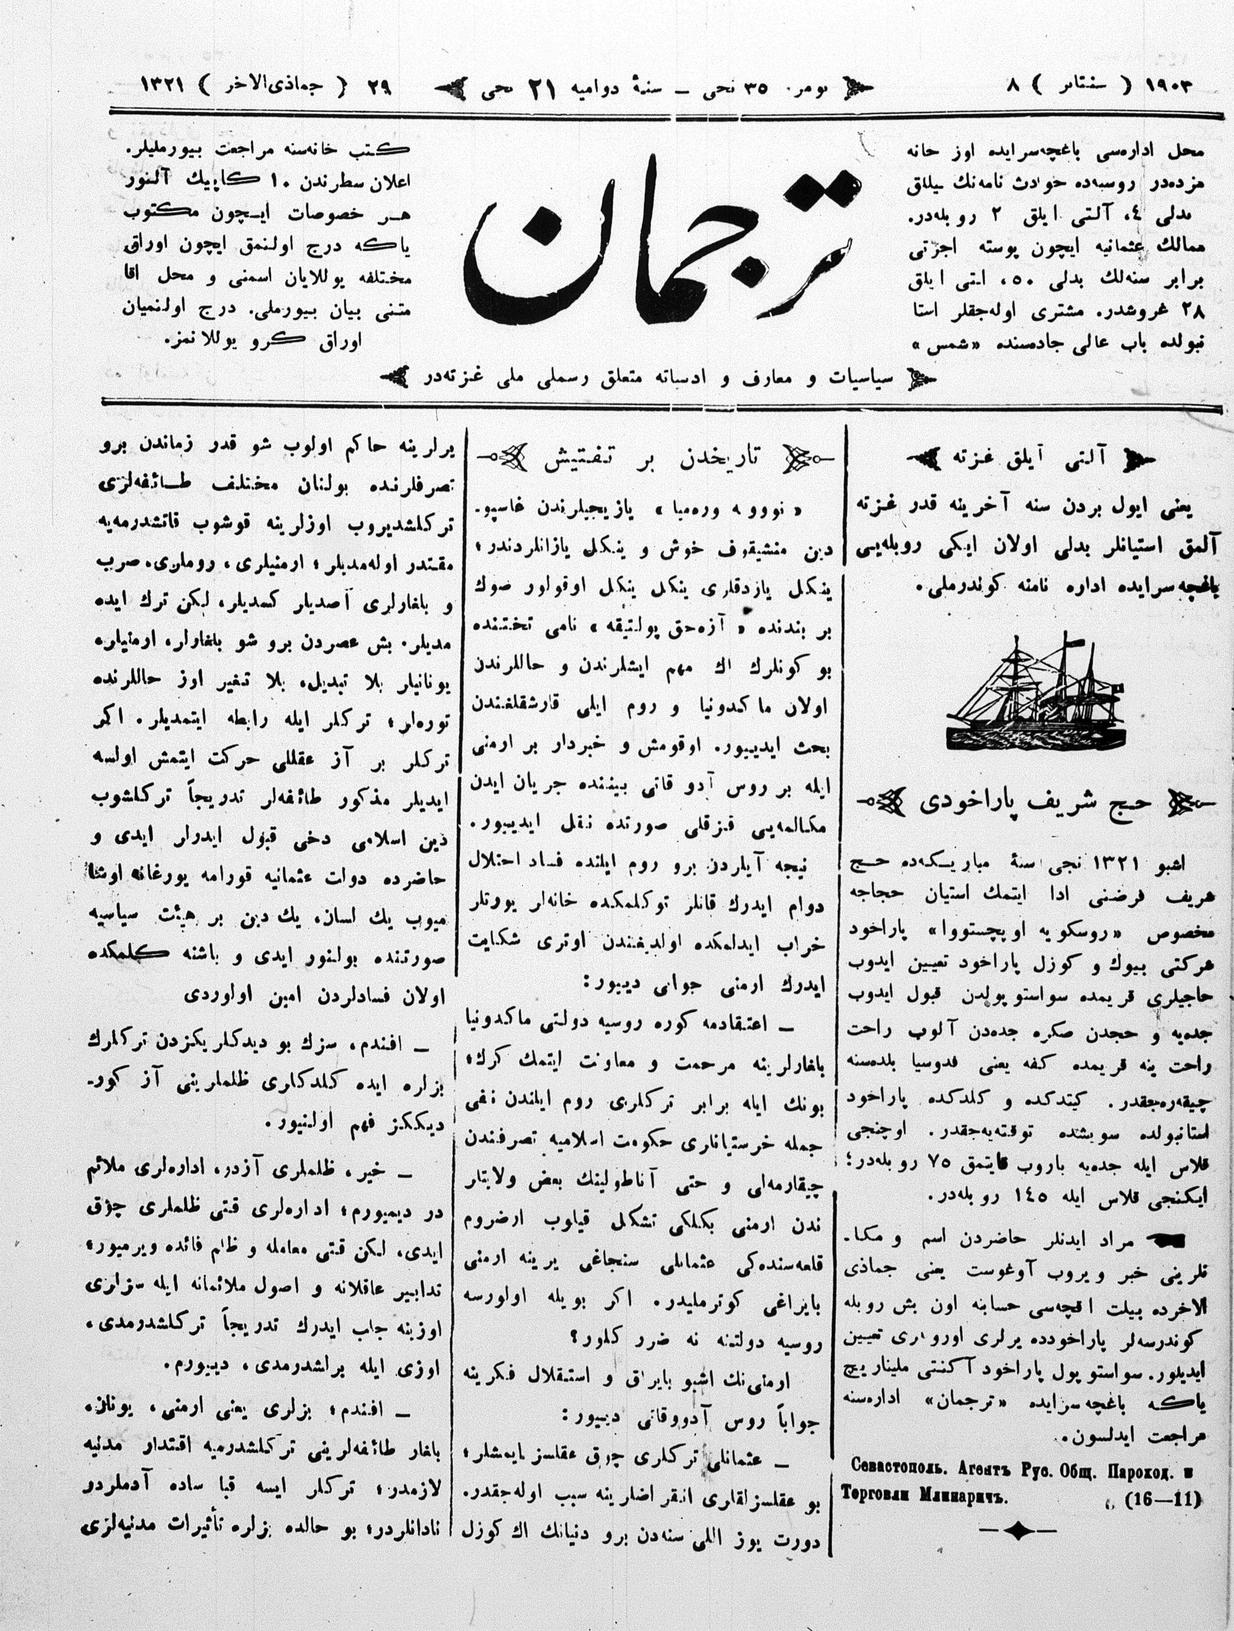 ١٩٠٣ ( سنتابر ) ٨
نومر. ٣٥ نجی — سنهٔ دوامیه 21 نجی
٢٩ ( جماذی‌الاخر ) ١٣٢١
محل اداره‌سی باغچه‌سرایده اوز خانه
مزده‌در روسیه‌ده حوادث نامه‌نك ییللق
بدلی ٤، آلتی ایلق ٢ روبله‌در.
ممالك عثمانیه ایچون پوسته اجرتی
برابر سنه‌لك بدلی ٥٠، التی ایلق
٢٨ غروشدر. مشتری اوله‌جقلر استا
نبولده باب عالی جاده‌سنده «شمس»
ترجمان
كتب خانه‌سنه مراجعت بیورملیلر.
اعلان سطرندن ١٠ كاپیك آلنور
هر خصوصات ایچون مكتوب
یاكه درج اولنمق ایچون اوراق
مختلفه یوللایان اسمنی و محل اقا
متنی بیان بیورملی. درج اولنمیان
اوراق كرو یوللانمز.
سیاسیات و معارف و ادبیاته متعلق رسملی ملی غزته‌در
آلتی آیلق غزته
یعنی ایول بردن سنه آخرینه قدر غزته
آلمق استیانلر بدلی اولان ایكی روبله‌یی
باغچه‌سرایده اداره نامنه كوندرملی.
حج شریف پاراخودی
اشبو ١٣٢١ نجی سنهٔ مباركه‌ده حج
شریف فرضنی ادا ایتمك استیان حجاجه
مخصوص «روسكویه اوبچستووا» پاراخود
شركتی بیوك و كوزل پاراخود تعیین ایدوب
حاجیلری قریمده سواستوپولدن قبول ایدوب
جده‌یه و حجدن صكره جده‌دن آلوب راحت
راحت ینه قریمده كفه یعنی فدوسیا بلده‌سنه
چیقه‌ره‌جقدر. كیتدكده و كلدكده پاراخود
استانبولده سویشده توقته‌یه‌جقدر. اوچنجی
قلاس ایله جده‌یه باروب قایتمق ٧٥ روبله‌در؛
ایكنجی قلاس ایله ١٤٥ روبله‌در.
مراد ایدنلر حاضردن اسم و مكا-
نلرینی خبر ویروب آوغوست یعنی جماذی
الاخرده بیلت اقچه‌سی حسابنه اون بش روبله
كوندرسه‌لر پاراخودده یرلری اورونری تعیین
ایدیلور. سواستوپول پاراخود آكنتی ملیناریچ
یاكه باغچه‌سرایده «ترجمان» اداره‌سنه
مراجعت ایدلسون.
Севастополь. Агентъ Рус. Общ. Пароход. и
Торговли Млинаричъ. (16—11)
تاریخدن بر تفتیش
«نوویه ورەمیا» یازیجیلرندن غاسپو-
دین منشیقوف خوش و ینكل یازانلردندر؛
ینكل یازدقلری ینكل ینكل اوقولور صوك
بر بندنده «آزه‌جق پولتیقه» نامی تختنده
بو كونلرك اك مهم ایشلرندن و حاللرندن
اولان ماكدونیا و روم ایلی قارشقلغندن
بحث ایدییور. اوقومش و خبردار بر ارمنی
ایله بر روس آدوقاتی بیننده جریان ایدن
مكالمه‌یی قزقلی صورتده نقل ایدییور.
نیجه آیلردن برو روم ایلنده فساد اختلال
دوام ایدرك قانلر توكلمكده خانه‌لر یورتلر
خراب ایدلمكده اولدیغندن اوتری شكایت
ایدرك ارمنی جوابی دییور:
— اعتقادمه كوره روسیه دولتی ماكدونیا
بلغارلرینه مرحمت و معاونت ایتمك كرك؛
بونك ایله برابر تركلری روم ایلندن نفی
جمله خرستیانلری حكومت اسلامیه تصرفندن
چیقارمه‌لی و حتی آناطولینك بعض ولایتلر
ندن ارمنی بكلكی تشكل قیلوب ارضروم
قلعه‌سنده‌كی عثمانلی سنجاغی یرینه ارمنی
بایراغی كوترملیدر. اكر بویله اولورسه
روسیه دولتنه نه ضرر كلور؟
ارمنی‌نك اشبو بایراق و استقلال فكرینه
جواباً روس آدووقاتی دییور:
— عثمانلی تركلری چوق عقلسز ایمشلر؛
بو عقلسزلقلری انقراضلرینه سبب اوله‌جقدر.
دورت یوز اللی سنه‌دن برو دنیانك اك كوزل
یرلرینه حاكم اولوب شو قدر زماندن برو
تصرفلرنده بولنان مختلف طائفه‌لری
تركلشدیروب اوزلرینه قوشوب قاتشدرمه‌یه
مقتدر اوله‌مدیلر؛ ارمنیلری، روملری، صرب
و بلغارلری آصدیلر كسدیلر، لیكن ترك ایده
مدیلر. بش عصردن برو شو بلغارلر، ارمنیلر،
یونانیلر بلا تبدیل، بلا تغیر اوز حاللرنده
توره‌لر؛ تركلر ایله رابطه ایتمدیلر. اكر
تركلر بر آز عقللی حركت ایتمش اولسه
ایدیلر مذكور طائفه‌لر تدریجاً تركلشوب
دین اسلامی دخی قبول ایدرلر ایدی و
حاضرده دولت عثمانیه قورامه یورغانه اوشا
میوب یك لسان، یك دین بر هیئت سیاسیه
صورتنده بولنور ایدی و باشنه كلمكده
اولان فسادلردن امین اولوردی
— افندم، سزك بو دیدكلریكزدن تركلرك
بزلره ایده كلدكلری ظلملرینی آز كور-
دیككز فهم اولنیور.
— خیر، ظلملری آزدر، اداره‌لری ملائم
در دیمیورم؛ اداره‌لری قتی ظلملری چوق
ایدی، لیكن قتی معامله و ظلم فائده ویرمیور؛
تدابیر عاقلانه و اصول ملائمانه ایله سزلری
اوزینه جلب ایدرك تدریجاً تركلشدرمدی،
اوزی ایله براشدرمدی، دییورم.
— افندم؛ بزلری یعنی ارمنی، یونان،
بلغار طائفه‌لرینی تركلشدرمیه اقتدار مدنیه
لازمدر؛ تركلر ایسه قبا ساده آدملردر
نادانلردر؛ بو حالده بزلره تأثیرات مدنیه‌لری